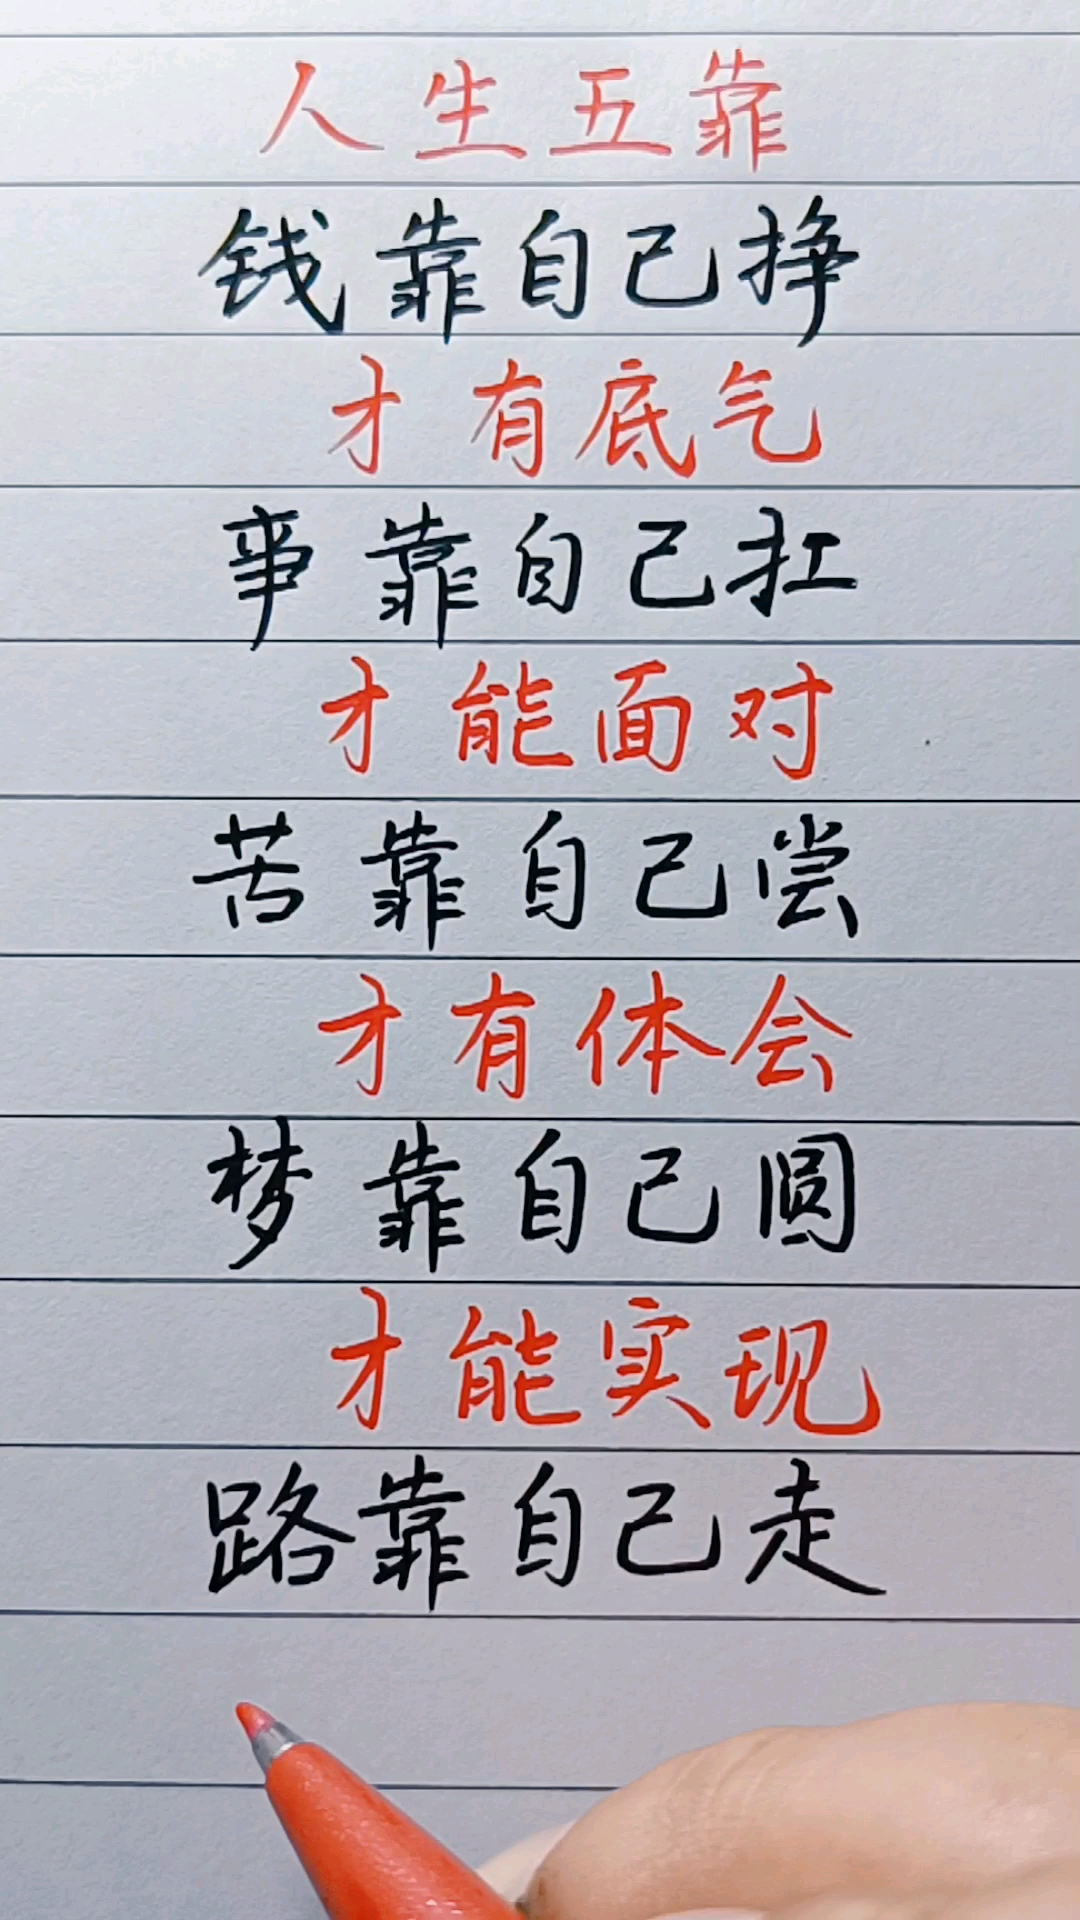 人生五靠
钱靠自己挣
才有底气
事靠自己扛
才能面对
苦靠自己尝
才有体会
梦靠自己圆
才能实现
路靠自己走